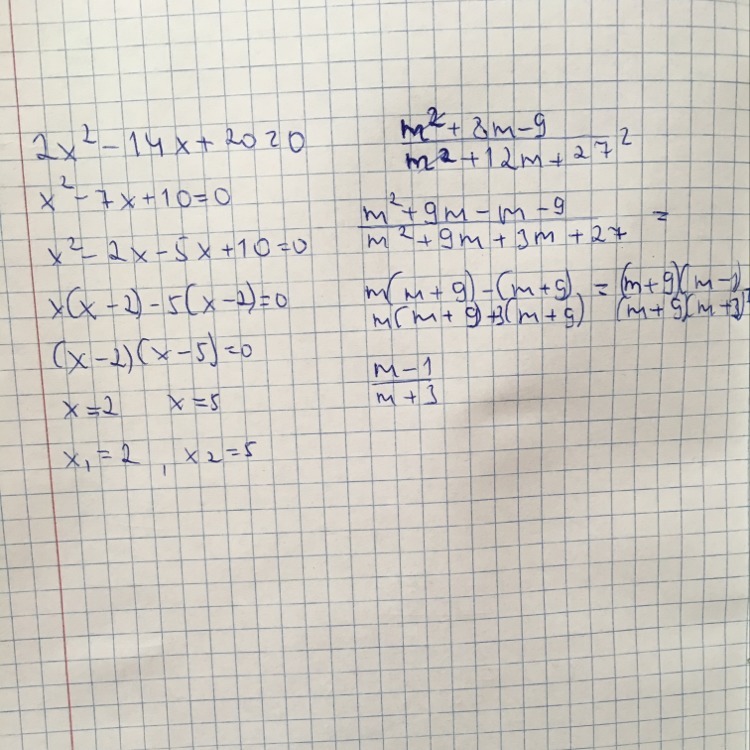 2x² - 14x + 20 = 0
x² - 7x + 10 = 0
x² - 2x - 5x + 10 = 0
x(x - 2) - 5(x - 2) = 0
(x - 2)(x - 5) = 0
x = 2 x = 5
x₁ = 2 , x₂ = 5
m² + 8m - 9
m² + 12m + 27 =
m² + 9m - m - 9
m² + 9m + 3m + 27 =
m(m + 9) - (m + 9) = (m + 9)(m - 1)
m(m + 9) + 3(m + 9) (m + 9)(m + 3) =
m - 1
m + 3